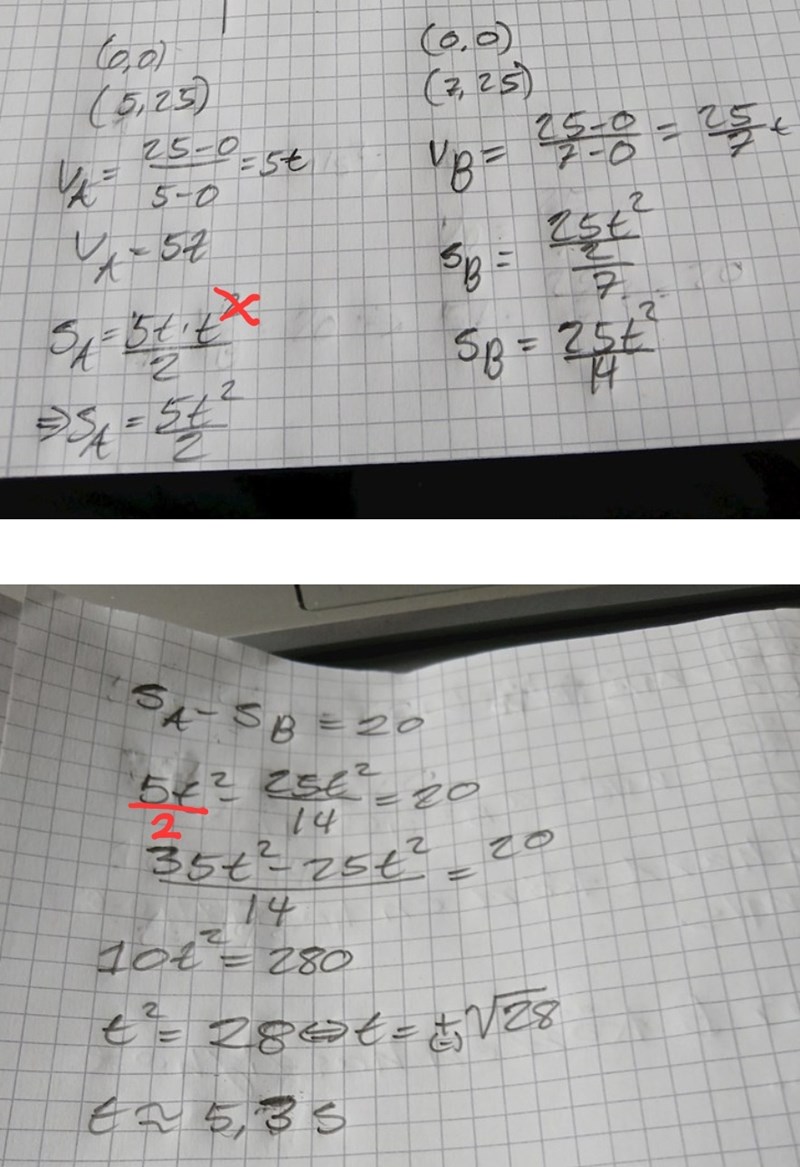 (0,0)
(5,25)
V_A = \frac{25-0}{5-0} = 5t
V_A = 5t
S_A = \frac{5t \cdot t}{2} ×
⇒ S_A = \frac{5t^2}{2}
(0,0)
(7,25)
V_B = \frac{25-0}{7-0} = \frac{25}{7} t
S_B = \frac{\frac{25t^2}{2}}{7}
S_B = \frac{25t^2}{14}
S_A - S_B = 20
\frac{5t^2}{2} - \frac{25t^2}{14} = 20
\frac{35t^2 - 25t^2}{14} = 20
10t^2 = 280
t^2 = 28 ⇔ t = \underset{(-)}{+} \sqrt{28}
t ≈ 5,3 s